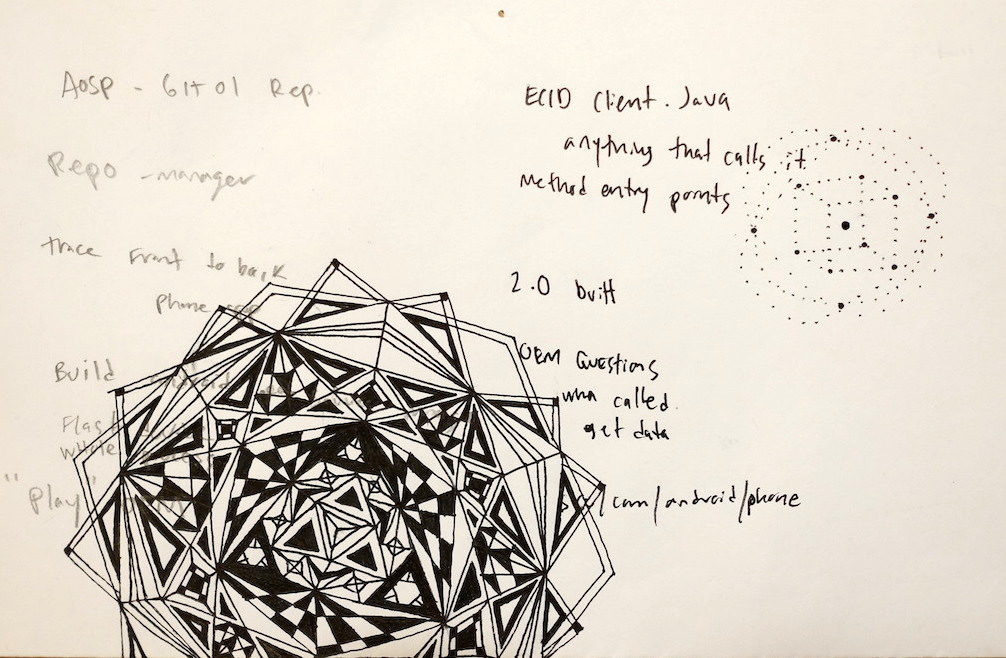 AOSP - Git 01 Rep.
Repo - manager
trace front to back
phone
Build
Flash
whole
"Play"
ECID Client.Java
anything that calls it
Method entry points
2.0 built
OEM Questions
who called
get data
/com/android/phone